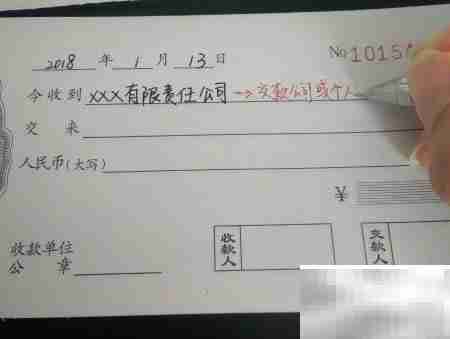 2018 年 1 月 13 日 No 1015
今收到 XXX有限责任公司 →交款公司或个人
交 来
人民币(大写)
¥
收款单位 收款人 交款人
公 章